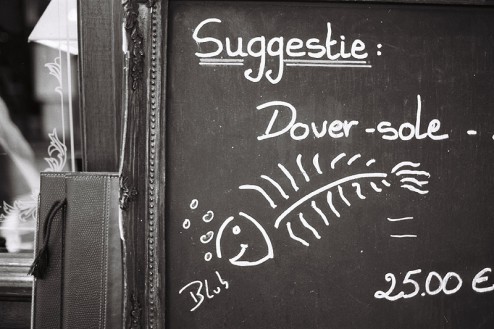 Suggestie:
Dover-sole -
Blub
25.00 €